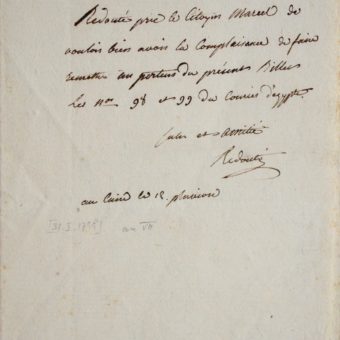 Redouté prie le Citoyen Marcel de
vouloir bien avoir la Complaisance de faire
remettre au porteur du présent Billet
Les nos 98 et 99 du Courier d'egypte.
Salut et amitié
Redouté
au Caire le 12 pluviose
[31.I.1799] an VII